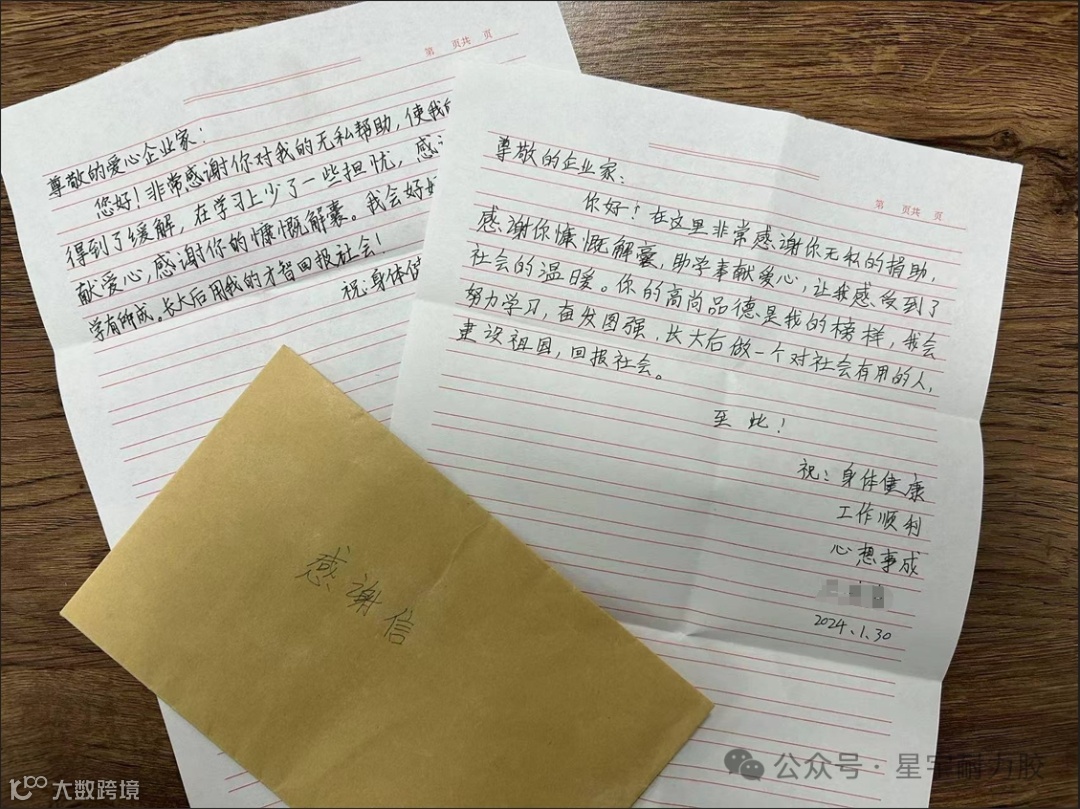 第 页共 页
尊敬的爱心企业家：
您好！非常感谢你对我的无私帮助，使我的
得到了缓解，在学习上少了一些担忧，感
献爱心，感谢你的慷慨解囊。我会好好
学有所成。长大后用我的才智回报社会！
祝：身体健
第 页共 页
尊敬的企业家：
你好！在这里非常感谢你无私的捐助，
感谢你慷慨解囊，助学奉献爱心，让我感受到了
社会的温暖。你的高尚品德是我的榜样，我会
努力学习，奋发图强，长大后做一个对社会有用的人，
建设祖国，回报社会。
至此！
祝：身体健康
工作顺利
心想事成
2024.1.30
感谢信
公众号·星宇耐力胶
大数跨境